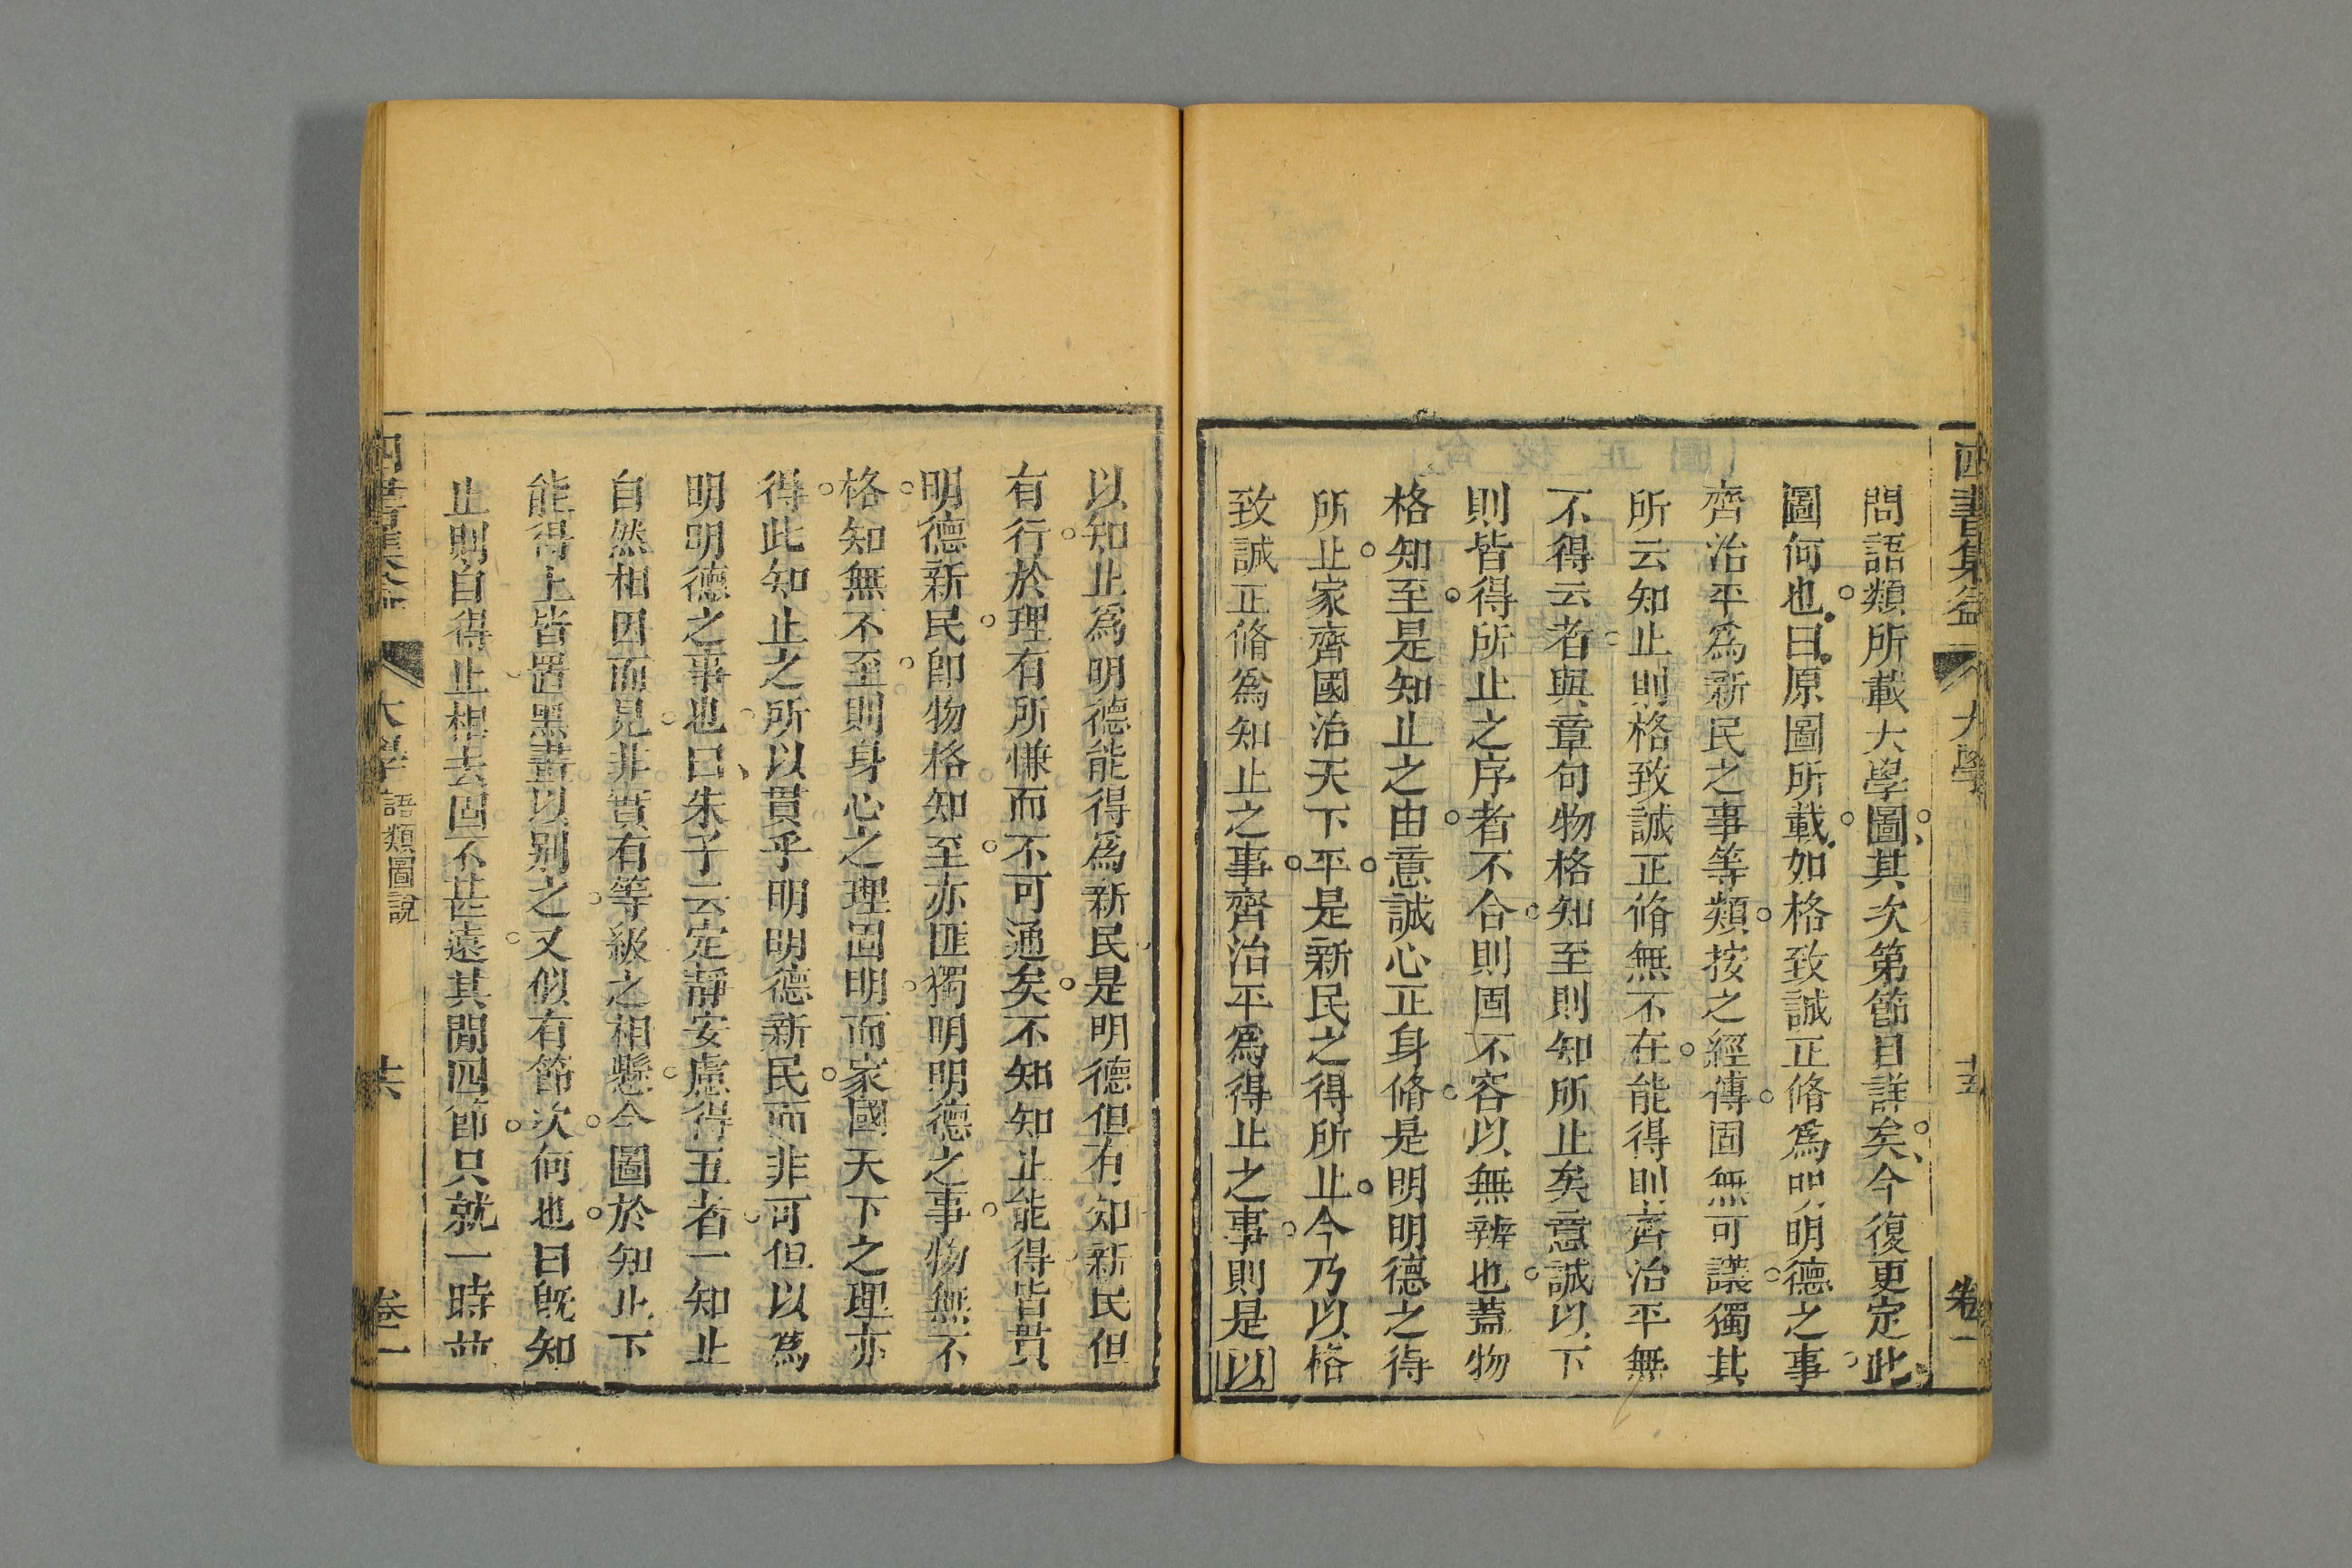 四書集益 大學 十五 卷一
問語類所載大學圖其次第節目詳矣今復更定此
圖何也曰原圖所載如格致誠正脩爲明明德之事
齊治平爲新民之事等類按之經傳固無可議獨其
所云知止則格致誠正脩無不在能得則齊治平無
不得云者與章句物格知至則知所止矣意誠以下
則皆得所止之序者不合則固不容以無辨也蓋物
格知至是知止之由意誠心正身脩是明明德之得
所止家齊國治天下平是新民之得所止今乃以格
致誠正脩爲知止之事齊治平爲得止之事則是以
以知止爲明德能得爲新民是明德但有知新民但
有行於理有所慊而不可通矣不知知止能得皆貫
明德新民卽物格知至亦匪獨明明德之事物無不
格知無不至則身心之理固明而家國天下之理亦
得此知止之所以貫乎明明德新民而非可但以爲
明明德之事也曰朱子云定靜安慮得五者一知止
自然相因而見非實有等級之相懸今圖於知止下
能得上皆置黑畫以別之又似有節次何也曰旣知
止則自得止相去固不甚遠其閒四節只就一時並
四書集益 大學 語類圖說 十六 卷一